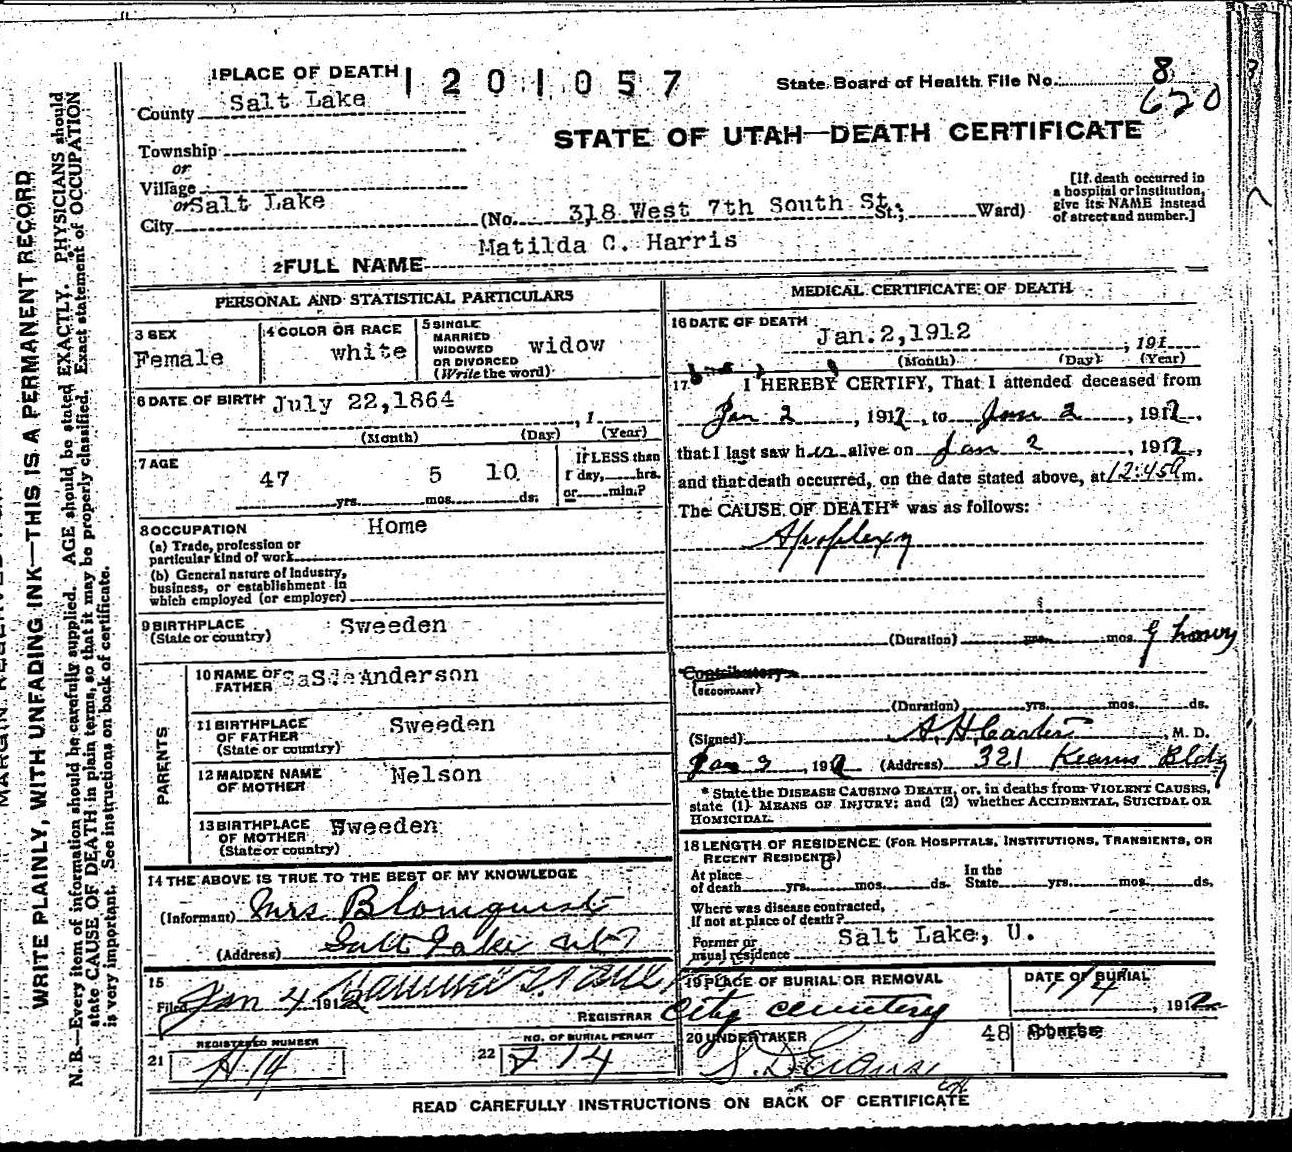 1 PLACE OF DEATH
1201057
State Board of Health File No. 8
620
County Salt Lake
STATE OF UTAH—DEATH CERTIFICATE
Township
or
Village
or Salt Lake
City (No. 318 West 7th South St. St.; Ward)
[If death occurred in
a hospital or institution,
give its NAME instead
of street and number.]
Matilda C. Harris
2 FULL NAME
PERSONAL AND STATISTICAL PARTICULARS
3 SEX
Female
4 COLOR OR RACE
white
5 SINGLE
MARRIED
WIDOWED
OR DIVORCED
(Write the word)
widow
6 DATE OF BIRTH July 22,1864
, 1
(Month) (Day) (Year)
7 AGE
47 yrs. 5 mos. 10 ds.
If LESS than
1 day, hrs.
or min.?
8 OCCUPATION Home
(a) Trade, profession or
particular kind of work
(b) General nature of industry,
business, or establishment in
which employed (or employer)
9 BIRTHPLACE
(State or country) Sweeden
PARENTS
10 NAME OF
FATHER Anderson
11 BIRTHPLACE
OF FATHER
(State or country) Sweeden
12 MAIDEN NAME
OF MOTHER Nelson
13 BIRTHPLACE
OF MOTHER
(State or country) Sweeden
14 THE ABOVE IS TRUE TO THE BEST OF MY KNOWLEDGE
(Informant) Mrs Blomquist
(Address) Salt Lake
15
Filed Jan 4 1912
REGISTRAR
REGISTERED NUMBER
21 H 14
NO. OF BURIAL PERMIT
22 714
MEDICAL CERTIFICATE OF DEATH
16 DATE OF DEATH
Jan.2,1912
, 191
(Month) (Day) (Year)
17 I HEREBY CERTIFY, That I attended deceased from
Jan 2, 1912, to Jan 2, 1912,
that I last saw her alive on Jan 2 1912,
and that death occurred, on the date stated above, at 12:45 m.
The CAUSE OF DEATH* was as follows:
Apoplexy
(Duration) yrs. mos. 9 hours
Contributory
(SECONDARY)
(Duration) yrs. mos. ds.
(Signed) A. H. Carter, M. D.
Jan 2, 191 (Address) 321 Kearns Bldg
* State the DISEASE CAUSING DEATH, or, in deaths from VIOLENT CAUSES,
state (1) MEANS OF INJURY; and (2) whether ACCIDENTAL, SUICIDAL OR
HOMICIDAL.
18 LENGTH OF RESIDENCE (FOR HOSPITALS, INSTITUTIONS, TRANSIENTS, OR
RECENT RESIDENTS)
At place
of death yrs. mos. ds.
In the
State yrs. mos. ds.
Where was disease contracted,
if not at place of death?
Former or
usual residence Salt Lake, U.
19 PLACE OF BURIAL OR REMOVAL
City cemetery
DATE OF BURIAL
1/4, 1912
20 UNDERTAKER
S. D. Evans
48 State
ADDRESS
READ CAREFULLY INSTRUCTIONS ON BACK OF CERTIFICATE
WRITE PLAINLY, WITH UNFADING INK—THIS IS A PERMANENT RECORD
N. B.—Every item of information should be carefully supplied. AGE should be stated EXACTLY. PHYSICIANS should
state CAUSE OF DEATH in plain terms, so that it may be properly classified. Exact statement of OCCUPATION
is very important. See instructions on back of certificate.